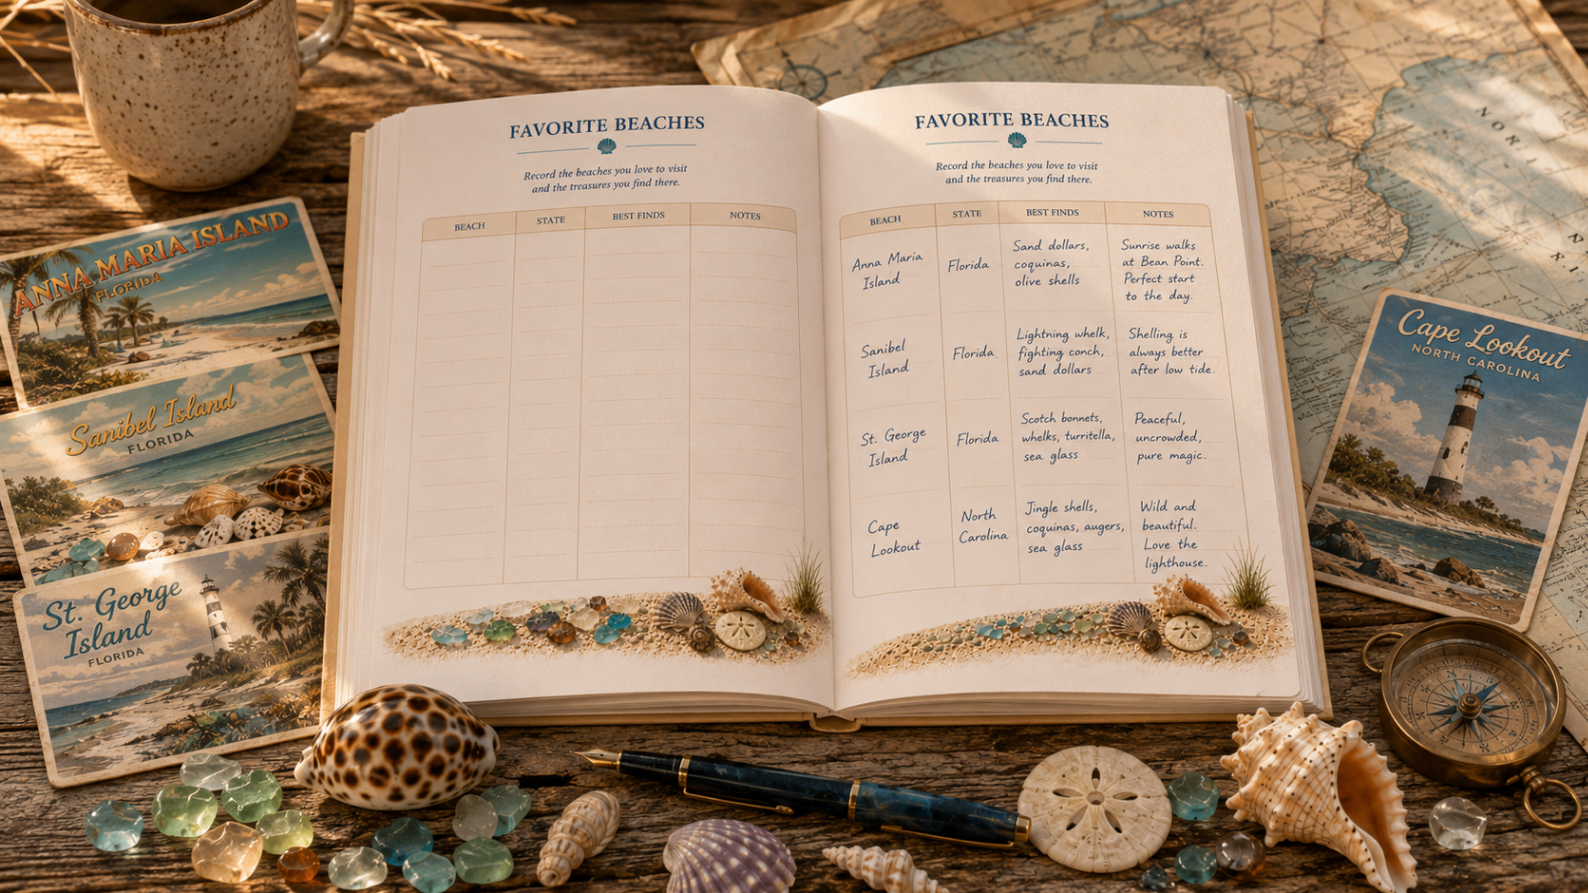 ANNA MARIA ISLAND
FLORIDA
Sanibel Island
FLORIDA
St. George
Island
FLORIDA
FAVORITE BEACHES
Record the beaches you love to visit
and the treasures you find there.
BEACH STATE BEST FINDS NOTES
FAVORITE BEACHES
Record the beaches you love to visit
and the treasures you find there.
BEACH STATE BEST FINDS NOTES
Anna Maria
Island
Florida
Sand dollars,
coquinas,
olive shells
Sunrise walks
at Bean Point.
Perfect start
to the day.
Sanibel
Island
Florida
Lightning whelk,
fighting conch,
sand dollars
Shelling is
always better
after low tide.
St. George
Island
Florida
Scotch bonnets,
whelks, turritella,
sea glass
Peaceful,
uncrowded,
pure magic.
Cape
Lookout
North
Carolina
Jingle shells,
coquinas, augers,
sea glass
Wild and
beautiful.
Love the
lighthouse.
Cape Lookout
NORTH CAROLINA